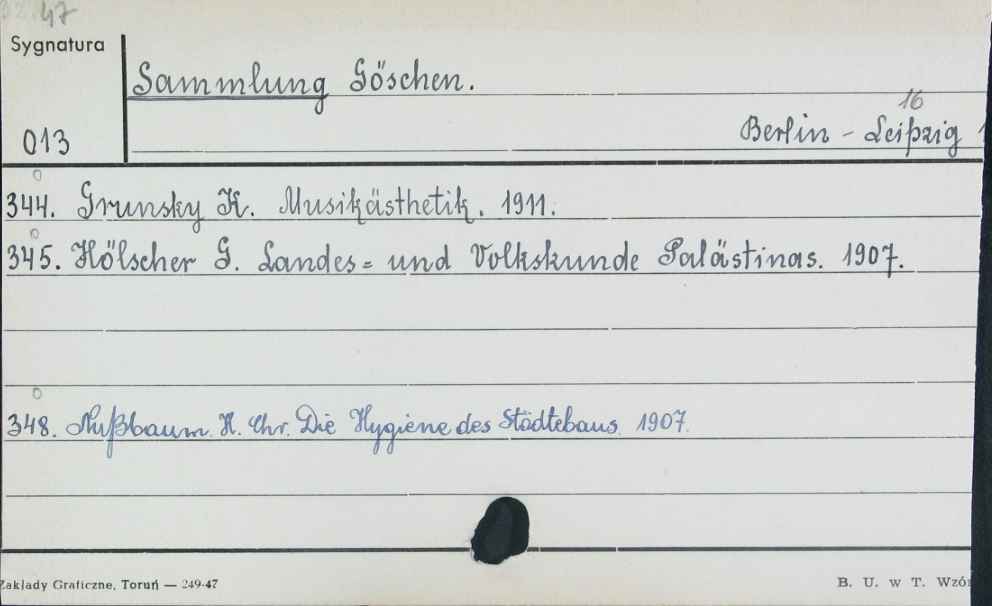 47
Sygnatura
Sammlung Göschen.
16
013
Berlin - Leipzig
344. Grunsky K. Musikästhetik. 1911.
345. Hölscher G. Landes= und Volkskunde Palästinas. 1907.
348. Nußbaum H. Chr. Die Hygiene des Städtebaus. 1907.
Zakłady Graficzne, Toruń — 249-47
B. U. w T. Wzór